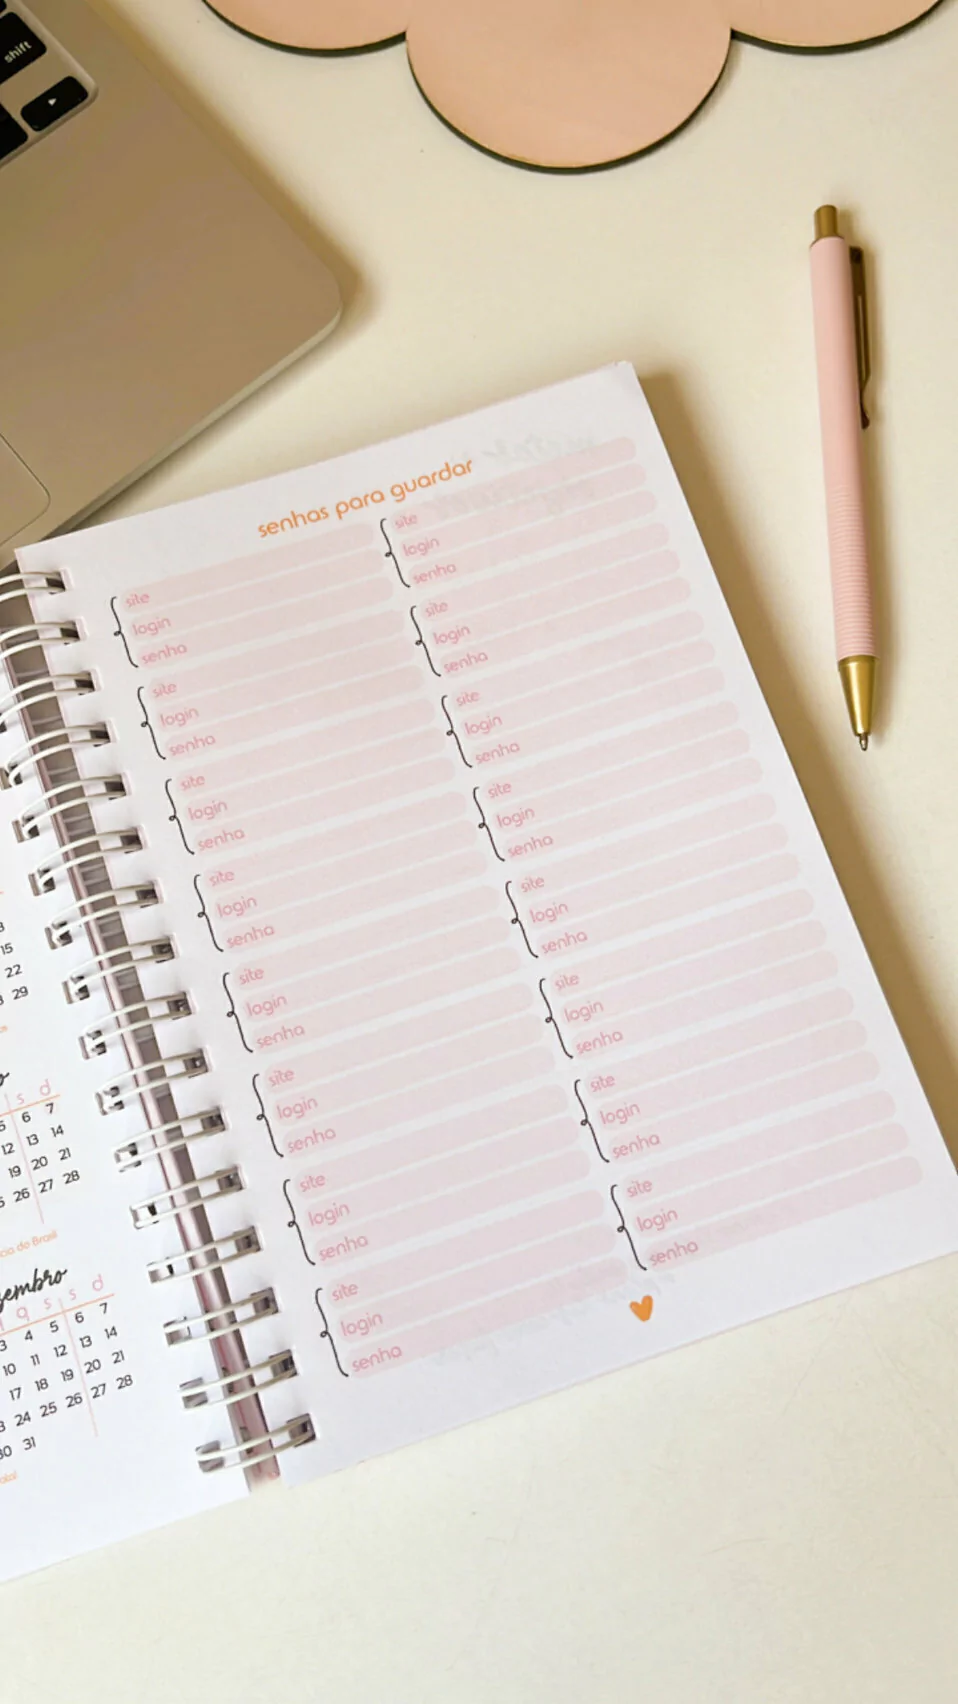 shift
15
22
29
s d
6 7
12 13 14
19 20 21
26 27 28
do Brasil
q s s d
3 4 5 6 7
10 11 12 13 14
17 18 19 20 21
24 25 26 27 28
31
senhas para guardar
site
login
senha
site
login
senha
site
login
senha
site
login
senha
site
login
senha
site
login
senha
site
login
senha
site
login
senha
site
login
senha
site
login
senha
site
login
senha
site
login
senha
site
login
senha
site
login
senha
site
login
senha
site
login
senha